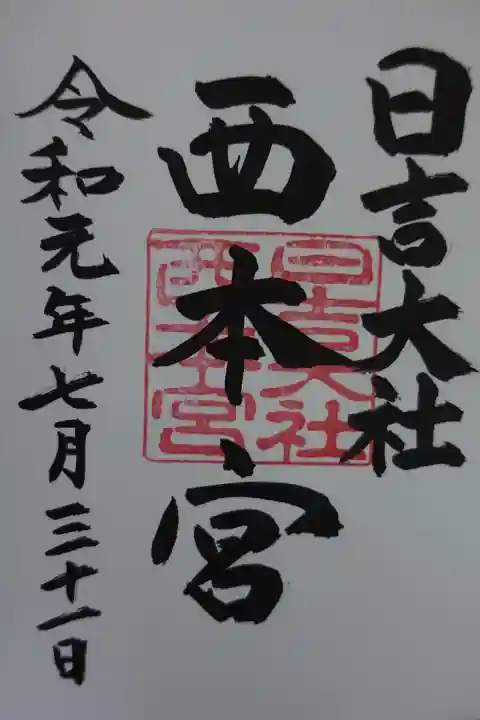 日吉大社
西本宮
日吉大社
西本宮
令和元年七月三十一日